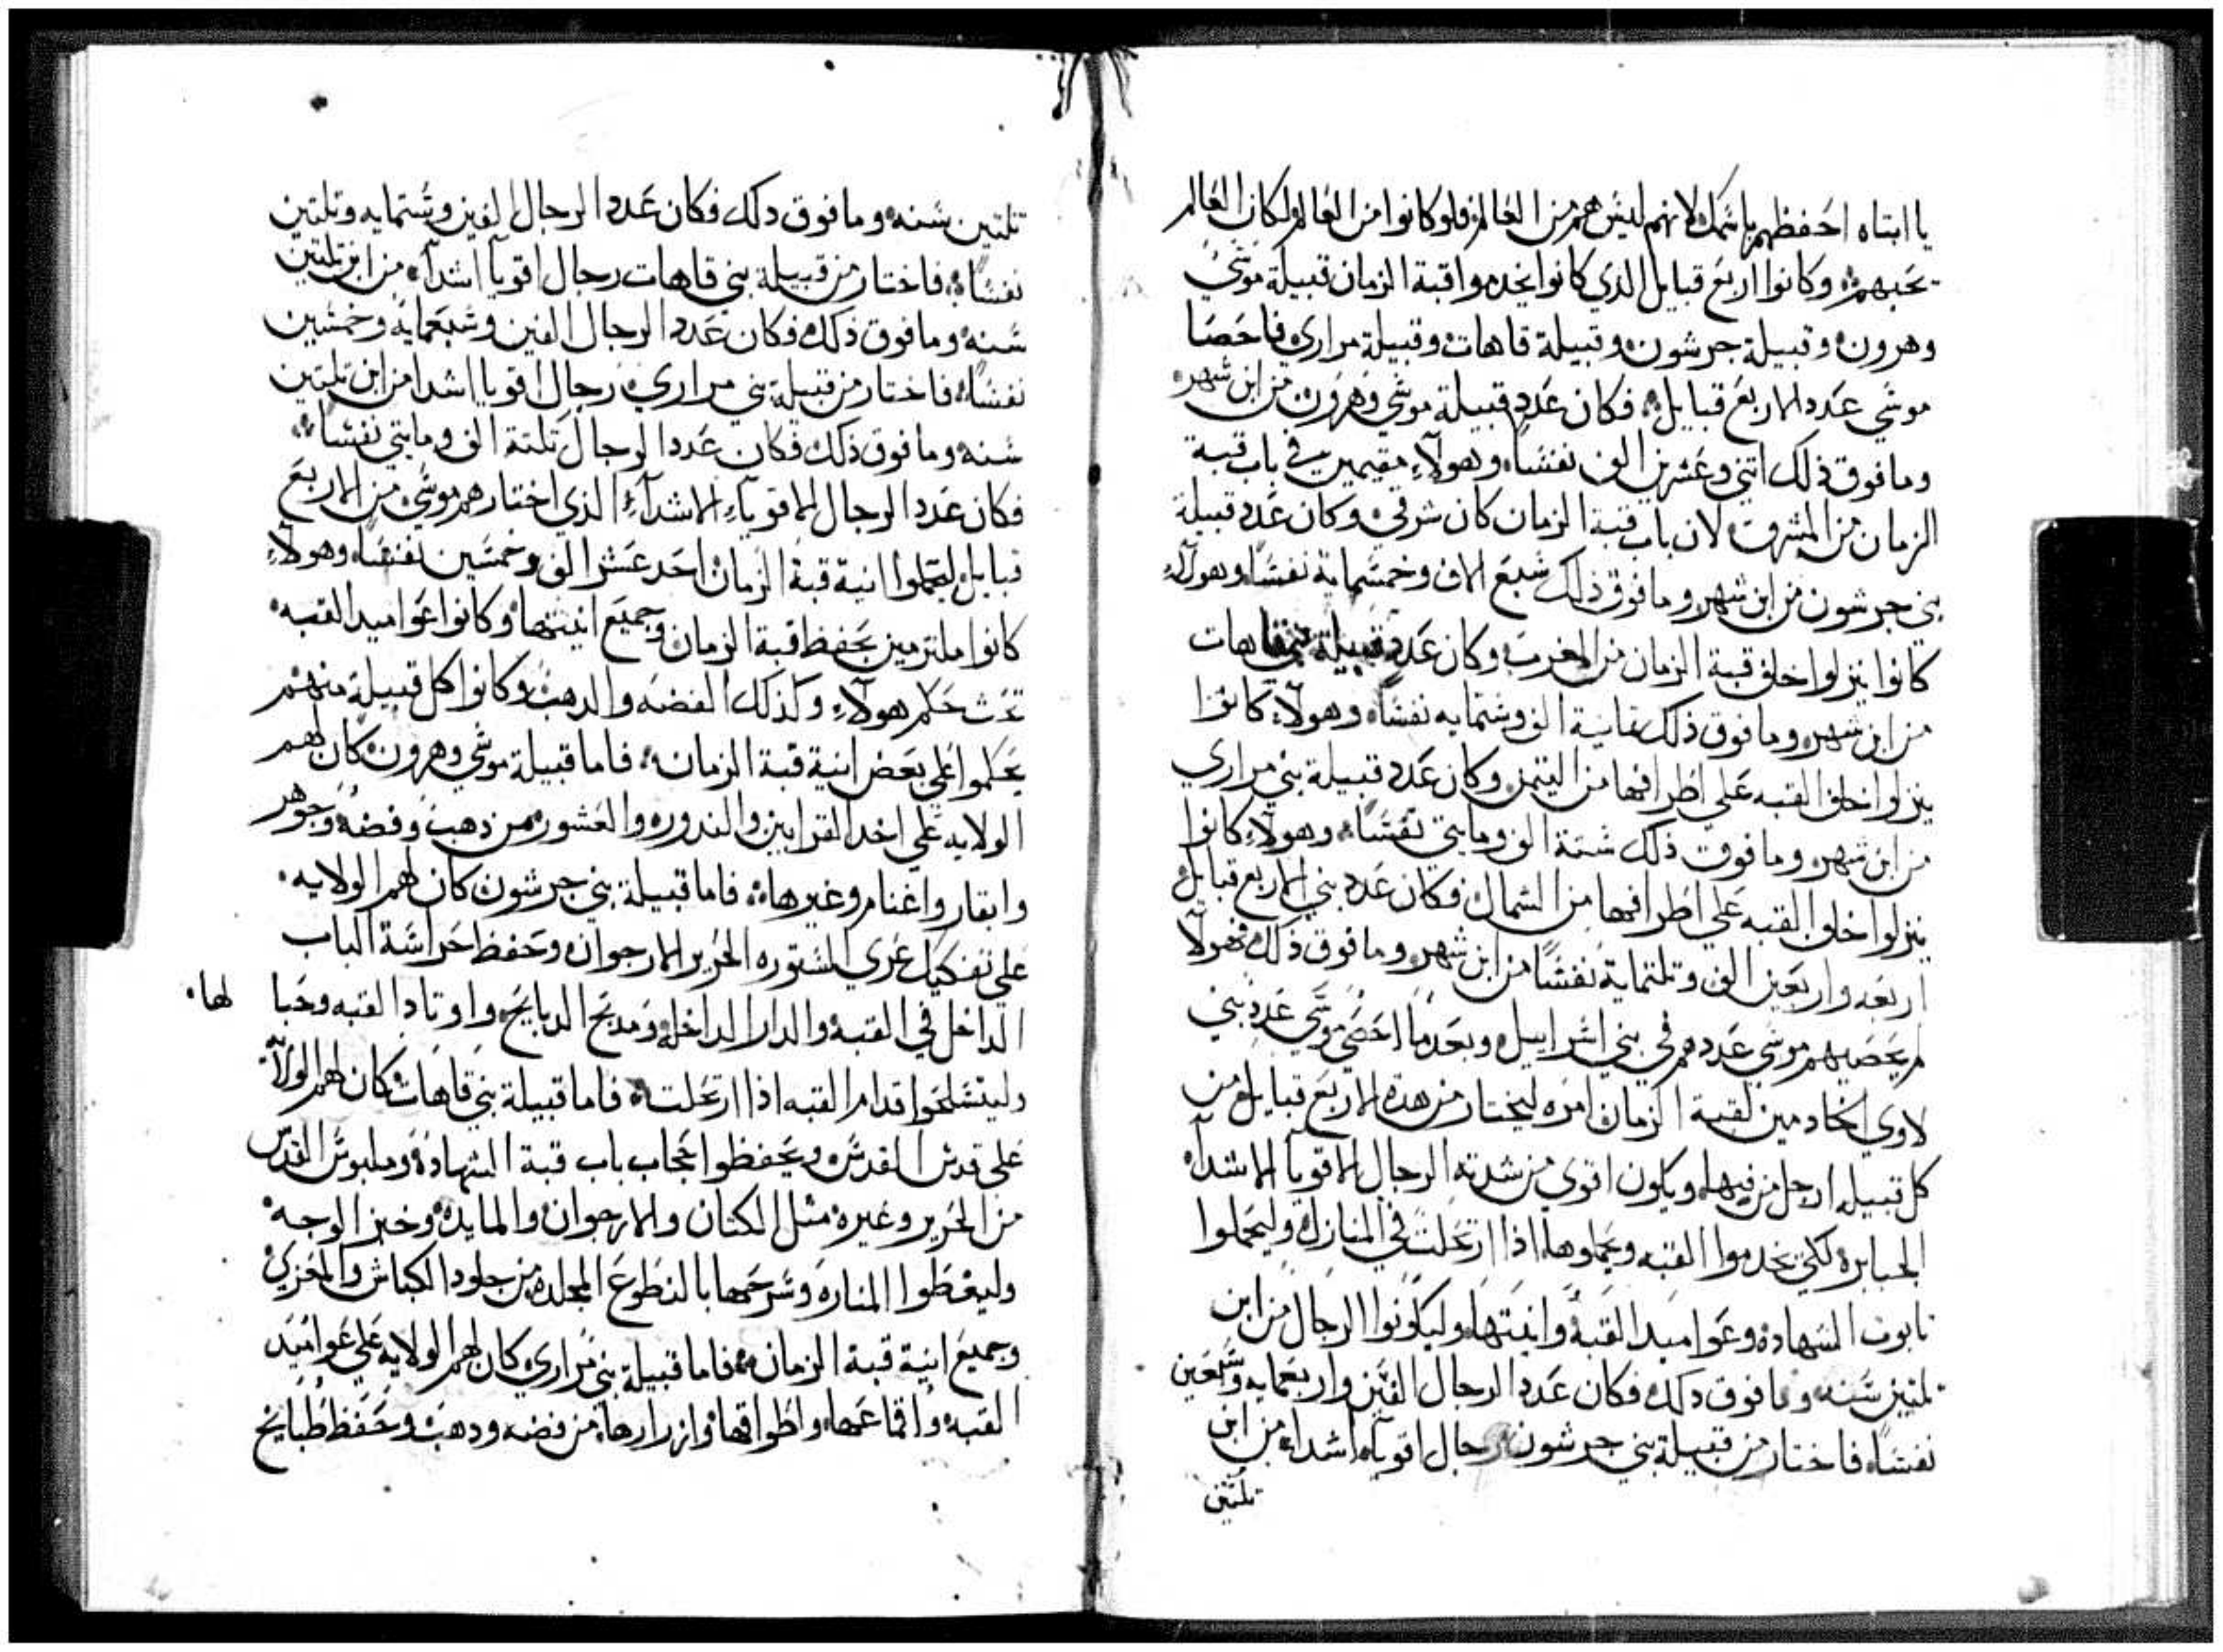 يا ابتاه احفظهم باسمك لانهم ليس هم من العالم فلو كانوا من العالم لكان العالم
يحبهم وكانوا اربع قبايل الذي كانوا يخدموا قبة الزمان قبيلة موسي
وهرون وقبيلة جرشون وقبيلة قاهات وقبيلة مراري فاحصا
موسي عدد الاربع قبايل فكان عدد قبيلة موسي وهرون من ابن شهر
وما فوق ذلك اتني وعشرين الف نفسا وهولآء مقيمين في باب قبة
الزمان من المشرق لان باب قبة الزمان كان شرقي وكان عدد قبيلة
بني جرشون من ابن شهر وما فوق ذلك سبع الاف وخمسماية نفسا وهولآء
كانوا ينزلوا خلف قبة الزمان من المغرب وكان عدد قبيلة بني قاهات
من ابن شهر وما فوق ذلك تمانية الف وستمايه نفسا وهولآء كانوا
ينزلوا خلف القبه علي اطرافها من اليتمن وكان عدد قبيلة بني مراري
من ابن شهر وما فوق ذلك ستة الف ومايتي نفسا وهولآء كانوا
ينزلوا خلف القبه علي اطرافها من الشمال فكان عدد بني الاربع قبايل
اربعه واربعين الف وتلتماية نفسا من ابن شهر وما فوق ذلك فهولا
لم يحصيهم موسي عددهم في بني اسراييل وبعد ما احصي موسي عدد بني
لاوي الخادمين لقبة الزمان امره ليختار من هده الاربع قبايل من
كل قبيله ارجل من فيها ويكون اقوي من شدته الرجال الاقويآ الاشدآء
الجبابره لكي يخدموا القبه ويحملوها اذا ارتحلت في المنازل وليحملوا
تابوت الشهاده وعواميد القبة وانيتها وليكونوا الرجال من ابن
تلتين سنه وما فوق دلك فكان عدد الرجال الفين واربعمايه وسبعين
نفسا فاختار من قبيلة بني جرشون رجال اقويآء اشداء من ابن
تلتين
تلتين سنه وما فوق دلك فكان عدد الرجال الفين وستمايه وتلتين
نفسا فاختار من قبيلة بني قاهات رجال اقويآ اشدآء من ابن تلتين
سنه وما فوق ذلك فكان عدد الرجال الفين وسبعماية وخمسين
نفسا فاختار من قبيلة بني مراري رجال اقويا اشدا من ابن تلتين
سنه وما فوق ذلك فكان عدد الرجال تلتة الف ومايتي نفسا
فكان عدد الرجال الاقويآء الاشدآء الذي اختارهم موسي من الاربع
قبايل ليحملوا انية قبة الزمان احد عشر الف وخمسين نفسا وهولآء
كانوا ملتزمين بحفظ قبة الزمان وجميع انيتها وكانوا عواميد القبه
تحت حكم هولآء وكذلك الفضه والدهب وكانوا كل قبيلة منهم
يحكموا علي بعض انية قبة الزمان فاما قبيلة موسي وهرون كان لهم
الولايه علي اخد القرابين والندوره والعشور من دهب وفضه وجوهر
وابقار واغنام وغيرها فاما قبيلة بني جرشون كان لهم الولايه
علي تفكيك عري الستوره الحرير الارجوان وحفظ حراسة الباب
الداخل في القبه والدار الداخل ومدبح الدبايح واوتاد القبه وحبا لها
وليتسلحوا قدام القبه اذا ارتحلت فاما قبيلة بني قاهات فكان لهم الولآيه
علي قدس القدس ويحفظوا حجاب باب قبة الشهادة وملبوس القدس
من الحرير وغيره مثل الكتان والارجوان والمايده وخبز الوجه
وليغطوا المناره وسرجها بالنطوع المجلده من جلود الكباش والمخزي
وجميع انية قبة الزمان فاما قبيلة بني مراري كان لهم الولايه علي عواميد
القبه واقماعها واطواقها وازرارها من فضه ودهب وحفظ طبايخ